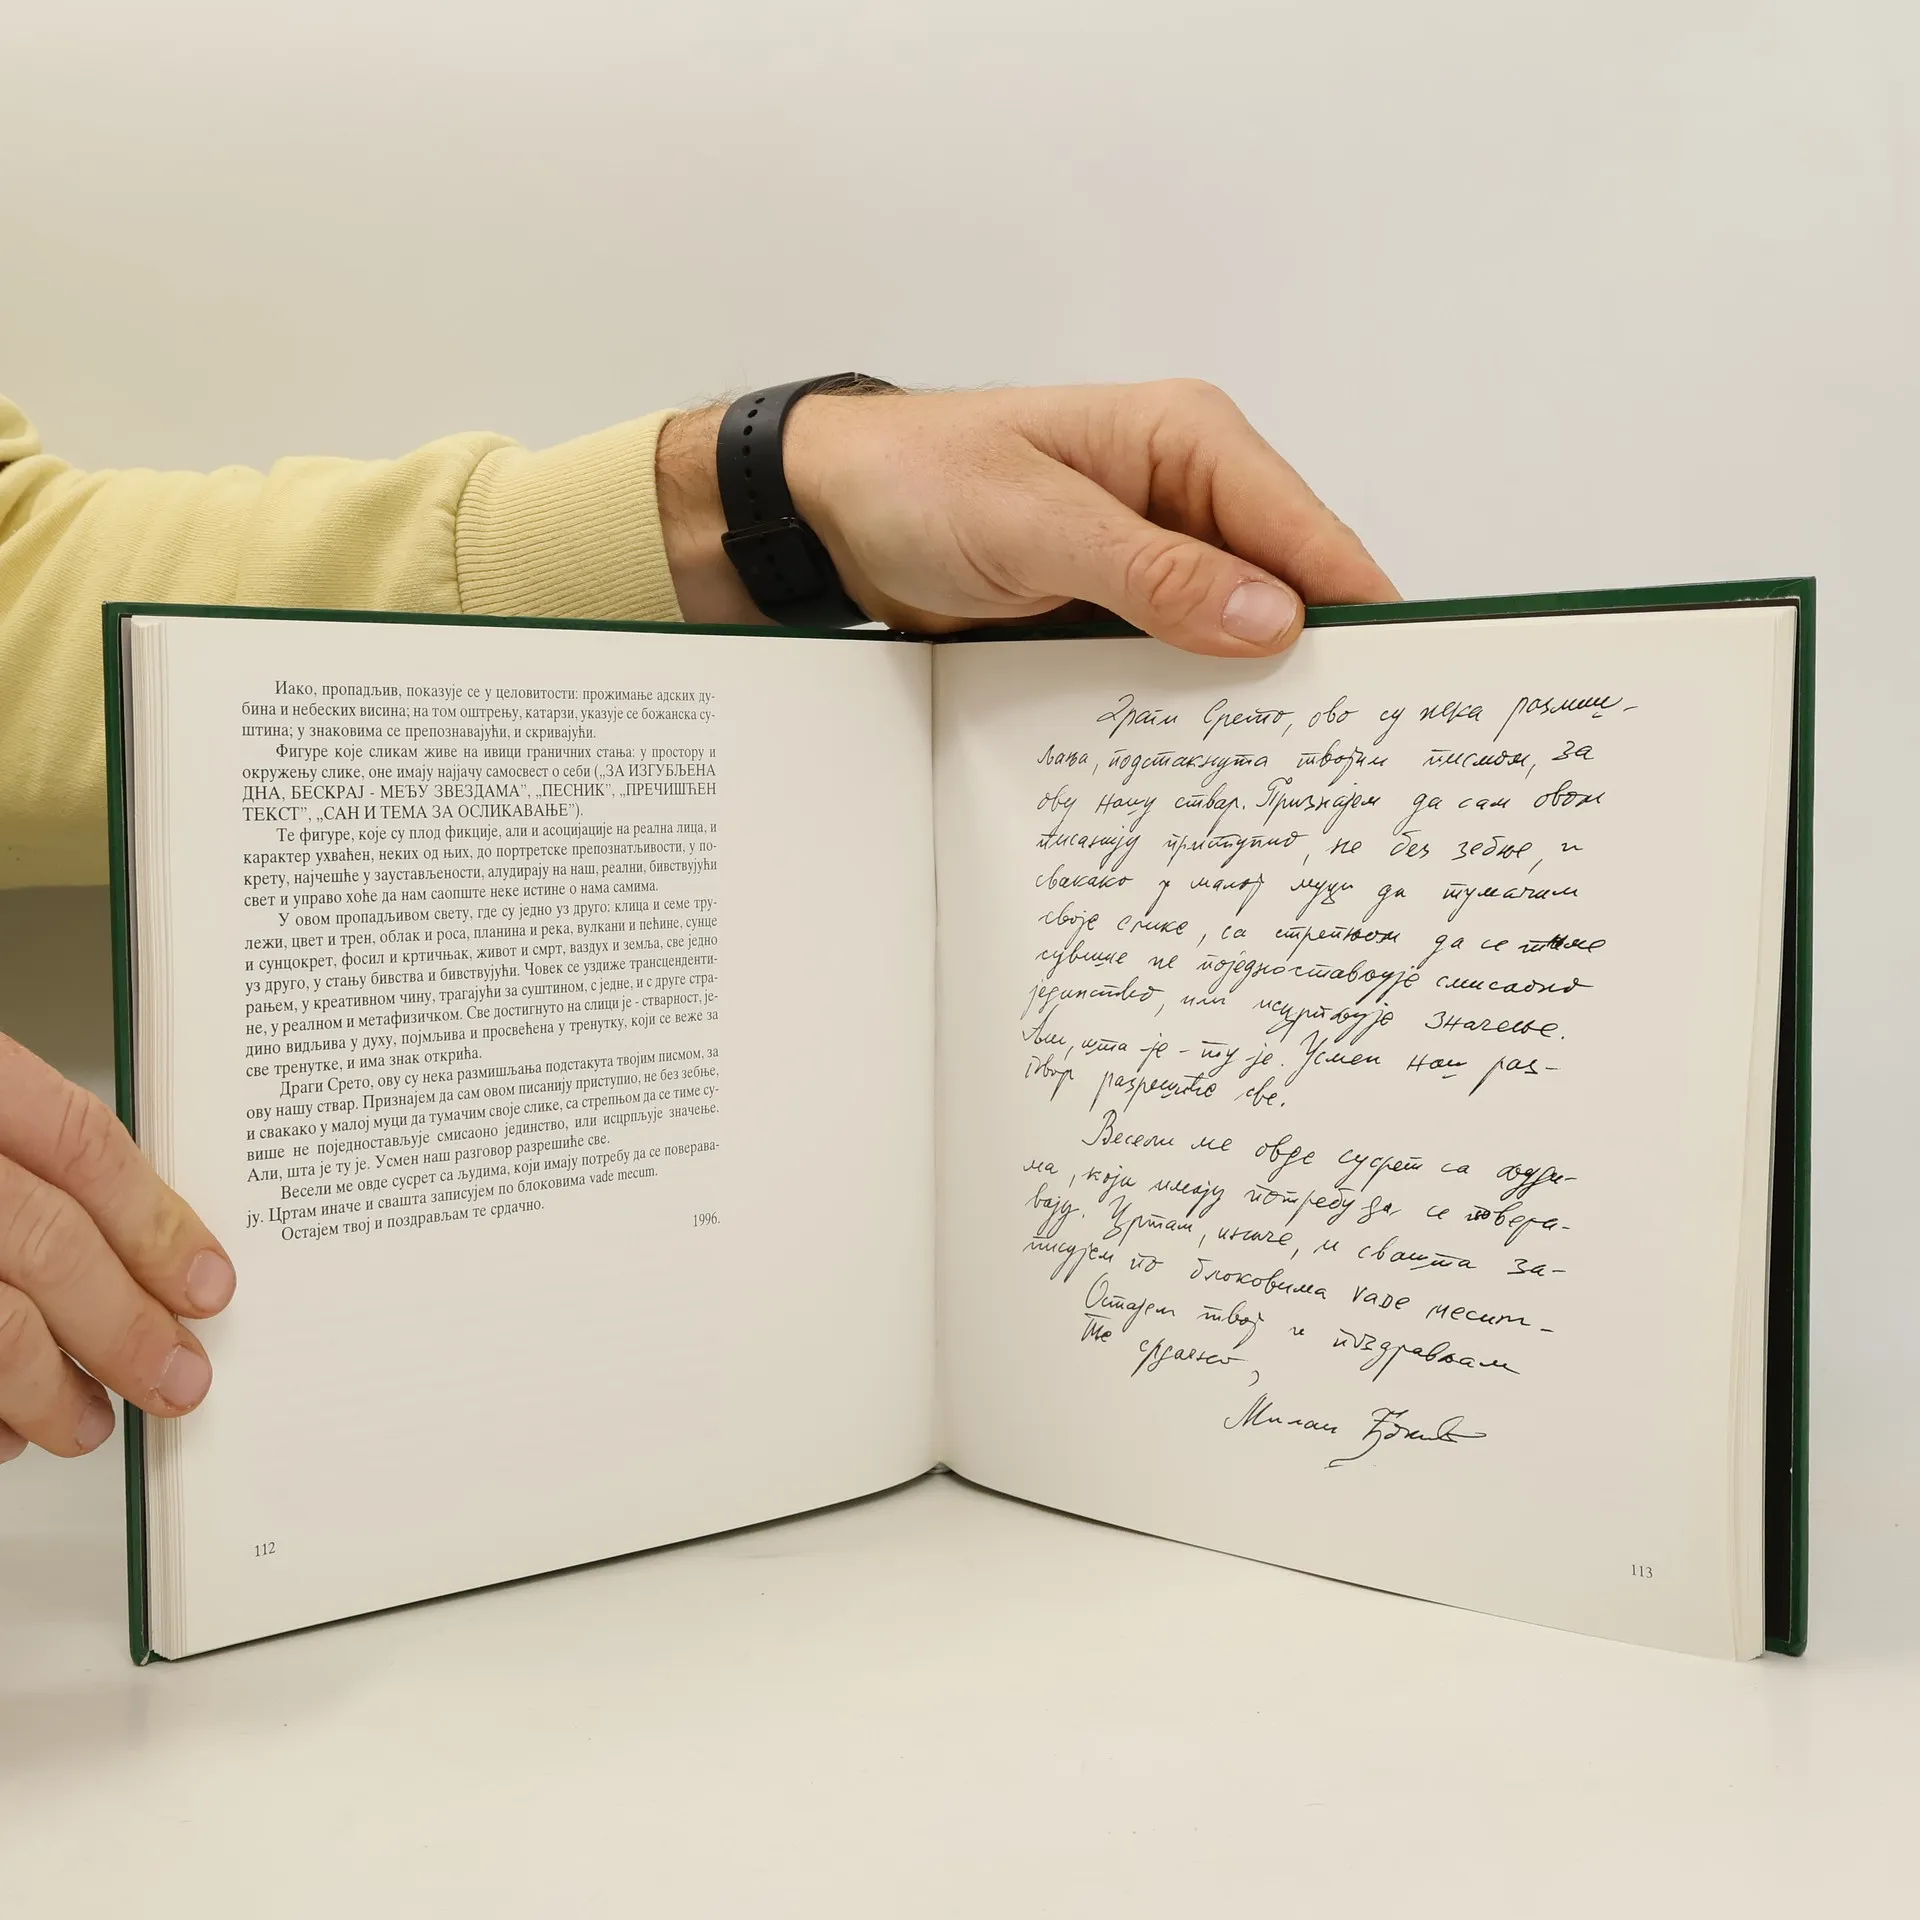 Иако, пропадљив, показује се у целовитости: прожимање адских ду-
бина и небеских висина; на том оштрењу, катарзи, указује се божанска су-
штина; у знаковима се препознавајући, и скривајући.
Фигуре које сликам живе на ивици граничних стања: у простору и
окружењу слике, оне имају најјачу самосвест о себи („ЗА ИЗГУБЉЕНА
ДНА, БЕСКРАЈ - МЕЂУ ЗВЕЗДАМА”, „ПЕСНИК”, „ПРЕЧИШЋЕН
ТЕКСТ”, „САН И ТЕМА ЗА ОСЛИКАВАЊЕ”).
Те фигуре, које су плод фикције, али и асоцијације на реална лица, и
карактер ухваћен, неких од њих, до портретске препознатљивости, у по-
крету, најчешће у заустављености, алудирају на наш, реални, бивствујући
свет и управо хоће да нам саопште неке истине о нама самима.
У овом пропадљивом свету, где су једно уз друго: клица и семе тру-
лежи, цвет и трен, облак и роса, планина и река, вулкани и пећине, сунце
и сунцокрет, фосил и кртичњак, живот и смрт, ваздух и земља, све једно
уз друго, у стању бивства и бивствујући. Човек се уздиже трансценденти-
рањем, у креативном чину, трагајући за суштином, с једне, и с друге стра-
не, у реалном и метафизичком. Све достигнуто на слици је - стварност, је-
дино видљива у духу, појмљива и просвећена у тренутку, који се веже за
све тренутке, и има знак открића.
Драги Срето, ову су нека размишљања подстакута твојим писмом, за
ову нашу ствар. Признајем да сам овом писанију приступио, не без зебње,
и свакако у малој муци да тумачим своје слике, са стрепњом да се тиме су-
више не поједностављује смисаоно јединство, или исцрпљује значење.
Али, шта је ту је. Усмен наш разговор разрешиће све.
Весели ме овде сусрет са људима, који имају потребу да се поверава-
ју. Цртам иначе и свашта записујем по блоковима vade mecum.
Остајем твој и поздрављам те срдачно.
1996.
112
Драги Срето, ово су нека размиш-
љања, подстакнута твојим писмом, за
ову нашу ствар. Признајем да сам овом
писанију приступио, не без зебње, и
свакако у малој муци да тумачим
своје слике, са стрепњом да се тиме
сувише не поједностављује смисаоно
јединство, или исцрпљује значење.
Али, шта је - ту је. Усмен наш раз-
говор разрешиће све.
Весели ме овде сусрет са људи-
ма, који имају потребу да се повера-
вају. Цртам, иначе, и свашта за-
писујем по блоковима vade mecum-
Остајем твој и поздрављам
те срдачно,
Милан
113